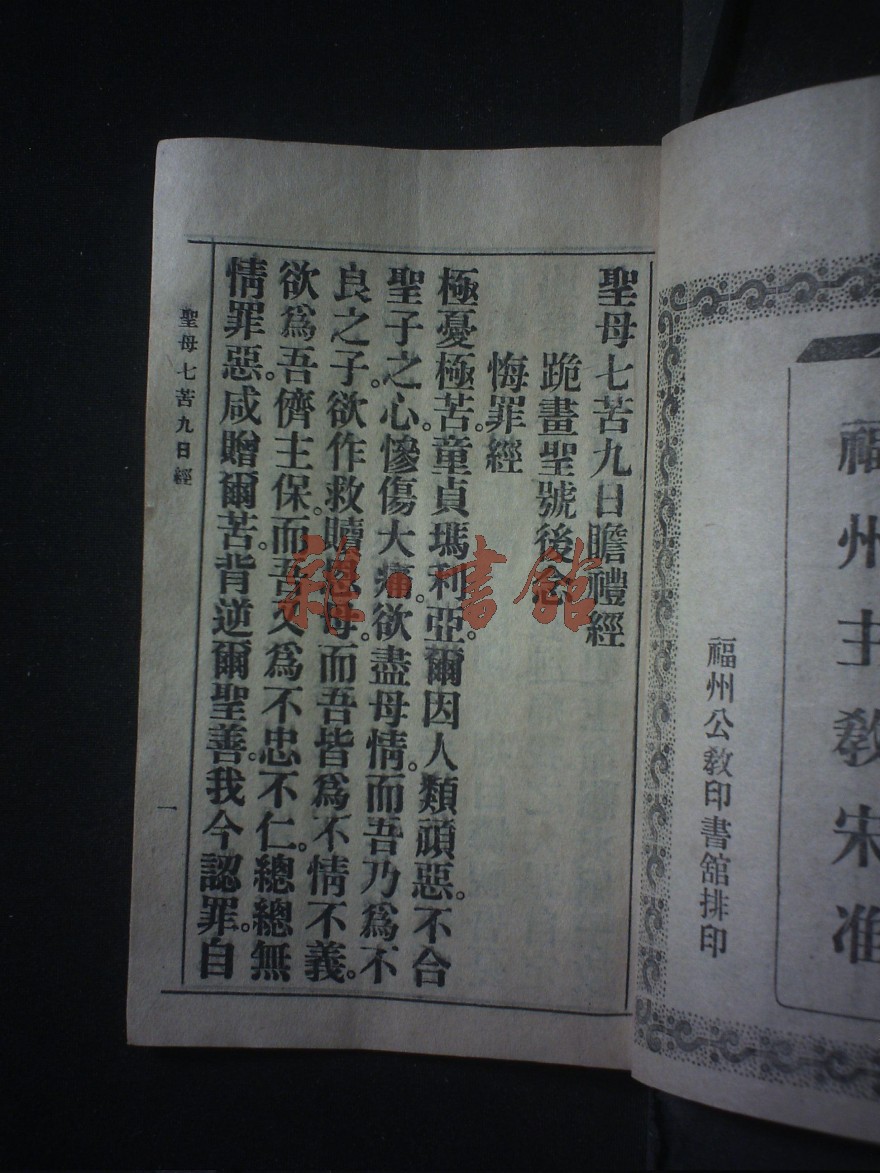 福州主教宋准
福州公教印書館排印
聖母七苦九日瞻禮經
跪畫聖號後念
悔罪經
極憂極苦。童貞瑪利亞。爾因人類頑惡。不合
聖子之心。慘傷大痛。欲盡母情。而吾乃為不
良之子。欲作救贖恩母。而吾皆為不情不義。
欲為吾儕主保。而吾又為不忠不仁。總總無
情罪惡。咸贈爾苦。背逆爾聖善。我今認罪。自
聖母七苦九日經
一
雜·書館